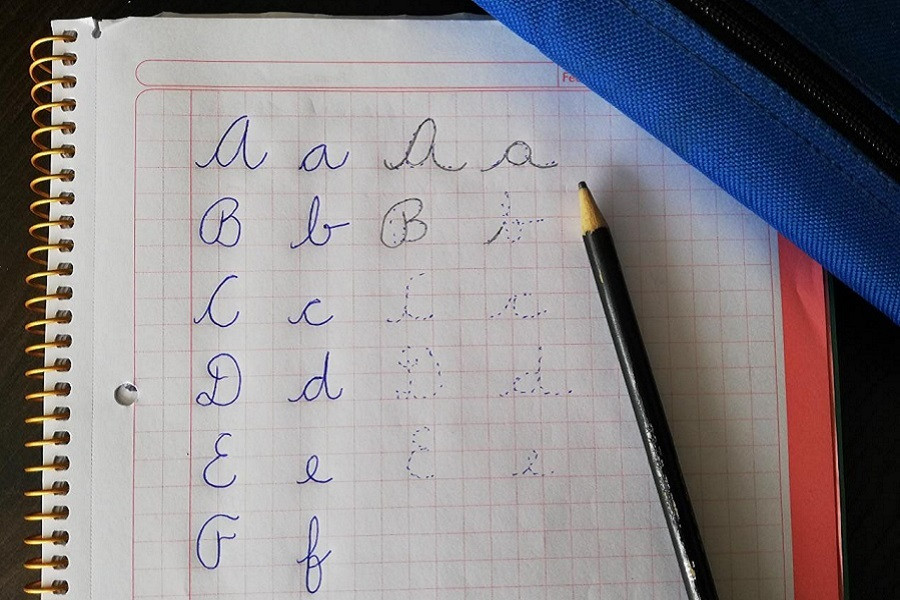 Fe
A a A a
B b B b
C c C c
D d D d
E e E e
F f